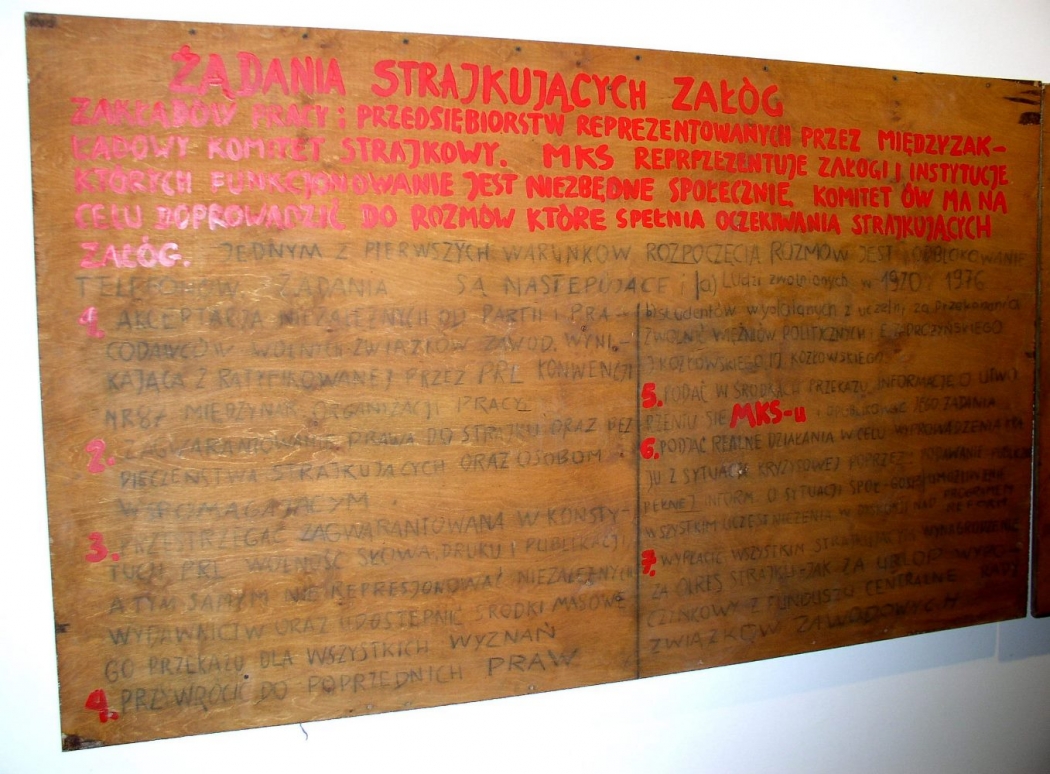 ŻĄDANIA STRAJKUJĄCYCH ZAŁÓG
ZAKŁADÓW PRACY I PRZEDSIĘBIORSTW REPREZENTOWANYCH PRZEZ MIĘDZYZAK-
ŁADOWY KOMITET STRAJKOWY. MKS REPRPZEZENTUJE ZAŁOGI I INSTYTUCJE
KTÓRYCH FUNKCJONOWANIE JEST NIEZBĘDNE SPOŁECZNIE. KOMITET ÓW MA NA
CELU DOPROWADZIĆ DO ROZMÓW KTÓRE SPEŁNIA OCZEKIWANIA STRAJKUJĄCYCH
ZAŁÓG. JEDNYM Z PIERWSZYCH WARUNKÓW ROZPOCZĘCIA ROZMÓW JEST ODBLOKOWANIE
TELEFONÓW. ŻĄDANIA SĄ NASTĘPUJĄCE:
1. AKCEPTACJA NIEZALEŻNYCH OD PARTII I PRA-
CODAWCÓW WOLNYCH ZWIĄZKÓW ZAWOD. WYNI-
KAJĄCA Z RATYFIKOWANEJ PRZEZ PRL KONWENCJI
NR 87 MIĘDZYNAR. ORGANIZACJI PRACY
2. ZAGWARANTOWANIE PRAWA DO STRAJKU ORAZ BEZ
PIECZEŃSTWA STRAJKUJĄCYCH ORAZ OSOBOM
WSPOMAGAJĄCYM.
3. PRZESTRZEGAĆ ZAGWARANTOWANĄ W KONSTY-
TUCJI PRL WOLNOŚĆ SŁOWA, DRUKU I PUBLIKACJI
A TYM SAMYM NIE REPRESJONOWAĆ NIEZALEŻNYCH
WYDAWNICTW ORAZ UDOSTĘPNIĆ ŚRODKI MASOWE
GO PRZEKAZU DLA WSZYSTKICH WYZNAŃ
4. PRZYWRÓCIĆ DO POPRZEDNICH PRAW
a) Ludzi zwolnionych w 1970 i 1976
b) studentów wydalonych z uczelni za przekonania
ZWOLNIĆ WIĘŹNIÓW POLITYCZNYCH E. ZAPRCZYŃSKIEGO
J KOZŁOWSKIEGO, M KOZŁOWSKIEGO
5. PODAĆ W ŚRODKACH PRZEKAZU INFORMACJE O UTWO
RZENIU SIĘ MKS-u I OPUBLIKOWAĆ JEGO ŻĄDANIA
6. PODJĄĆ REALNE DZIAŁANIA W CELU WYPROWADZENIA KRA
JU Z SYTUACJI KRYZYSOWEJ POPRZEZ PODAWANIE
PEŁNEJ INFORM. O SYTUACJI SPOŁ-GOSP.
WSZYSTKIM UCZESTNICZENIA W DYSKUSJI NAD PROGRAMEM REFORM
7. WYPŁACIĆ WSZYSTKIM STRAJKUJĄCYM WYNAGRODZENIE
ZA OKRES STRAJKU JAK ZA URLOP WYPO
CZYNKOWY Z FUNDUSZU CENTRALNE RADY
ZWIĄZKÓW ZAWODOWYCH